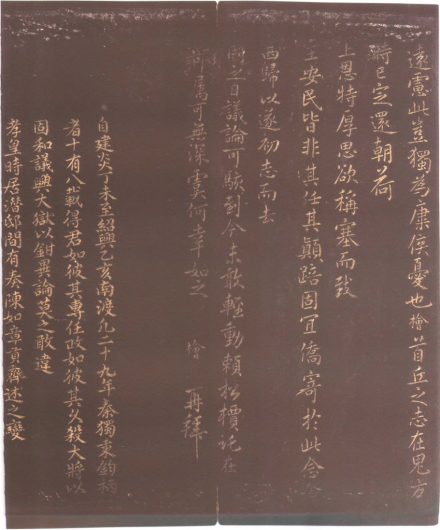 遠慮此豈獨為康侯憂也檜首丘之志在見方
時已定還朝荷
上恩特厚思欲稱塞而致
主安民皆非其任其顛踣固宜僑寄於此念
西歸以遂初志而去
國之日議論可駭到今未敢輕動賴松檟託在
高可無深虞何幸如之 檜 再拜
自建炎丁未至紹興乙亥南渡凡二十九年秦獨秉鈞柄
者十有八載得君如彼其專任政如彼其久殺大將以
固和議興大獄以鉗異論莫之敢違
孝皇時居潛邸間有奏陳如章貢齊述之變